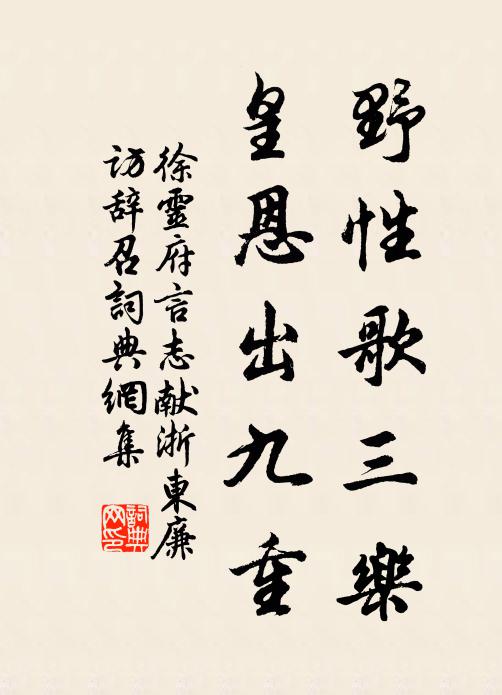 野性歌三樂
皇恩出九重
徐靈府言志献浙東廉
访辞召詞典網集
詞典网印